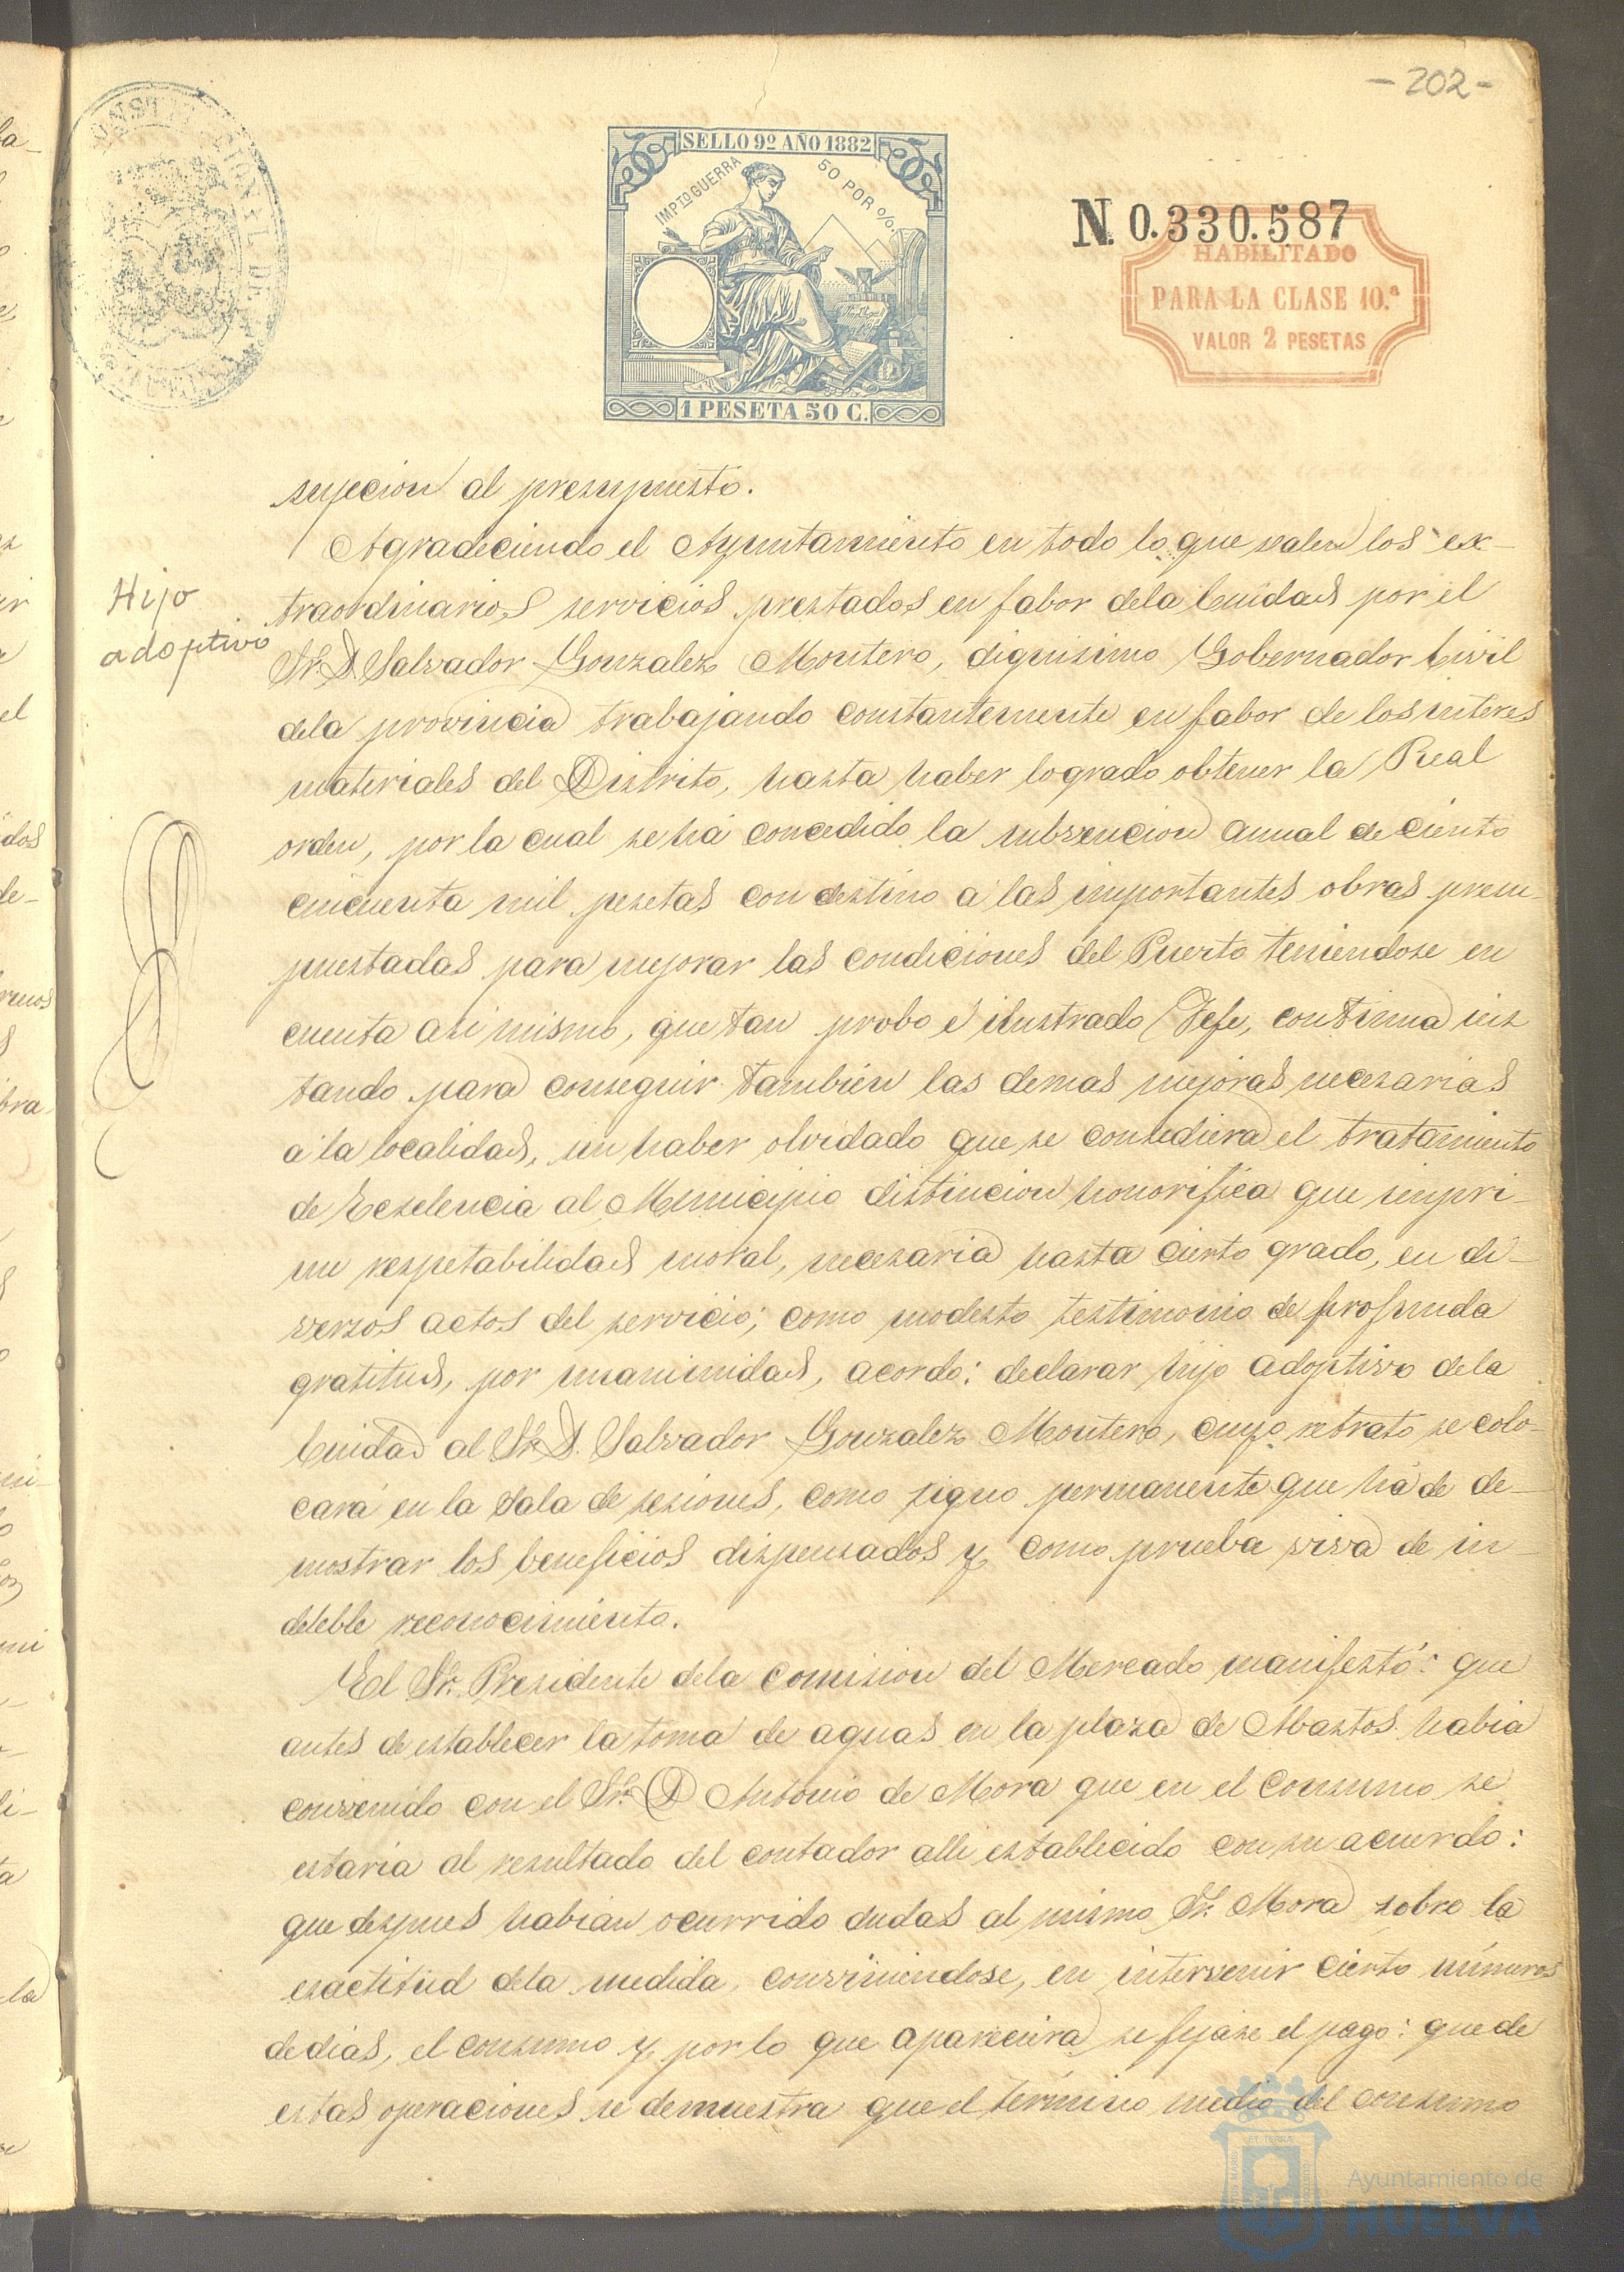 -202-
SELLO 9º AÑO 1882
IMPTO GUERRA 50 POR %
1 PESETA 50 C.
N. 0.330.587
HABILITADO
PARA LA CLASE 10.ª
VALOR 2 PESETAS
sujecion al presupuesto.
Hijo
adoptivo
Agradeciendo el Ayuntamiento en todo lo que valen los ex-
traordinarios servicios prestados en fabor dela Ciudad por el
Sr. D. Salvador Gonzalez Montero, dignisimo Gobernador Civil
dela provincia trabajando constantemente en fabor de los interes
materiales del Distrito, hasta haber logrado obtener la Real
orden, por la cual se há concedido la subvencion anual de ciento
cincuenta mil pesetas con destino á las importantes obras presu-
puestadas para mejorar las condiciones del Puerto teniendose en
cuenta asi mismo, que tan probo é ilustrado Jefe, continua ins
tando para conseguir tambien las demas mejoras necesarias
á la localidad, sin haber olvidado que se consediera el tratamiento
de Ecselencia al Municipio distincion honorifica que impri-
me respetabilidad moral, necesaria hasta cierto grado, en di-
versos actos del servicio; como modesto testimonio de profunda
gratitud, por unanimidad, acordo: declarar hijo adoptivo dela
Ciudad al Sr. D. Salvador Gonzalez Montero, cuyo retrato se colo-
cará en la Sala de sesiones, como signo permanente que há de de-
mostrar los beneficios dispensados y como prueba viva de in-
deleble reconocimiento.
El Sr. Presidente dela Comision del Mercado manifestó: que
antes de establecer la toma de aguas en la plaza de Abastos habia
convenido con el Sr. D Antonio de Mora que en el consumo se
estaria al resultado del contador alli establecido con su acuerdo:
que despues habian ocurrido dudas al mismo Sr. Mora sobre la
exactitud dela medida conviniendose, en intervenir cierto números
de dias, el consumo y por lo que apareciera se fijase el pago: que de
estas operaciones se demuestra que el término medio del consumo
Ayuntamiento de
HUELVA